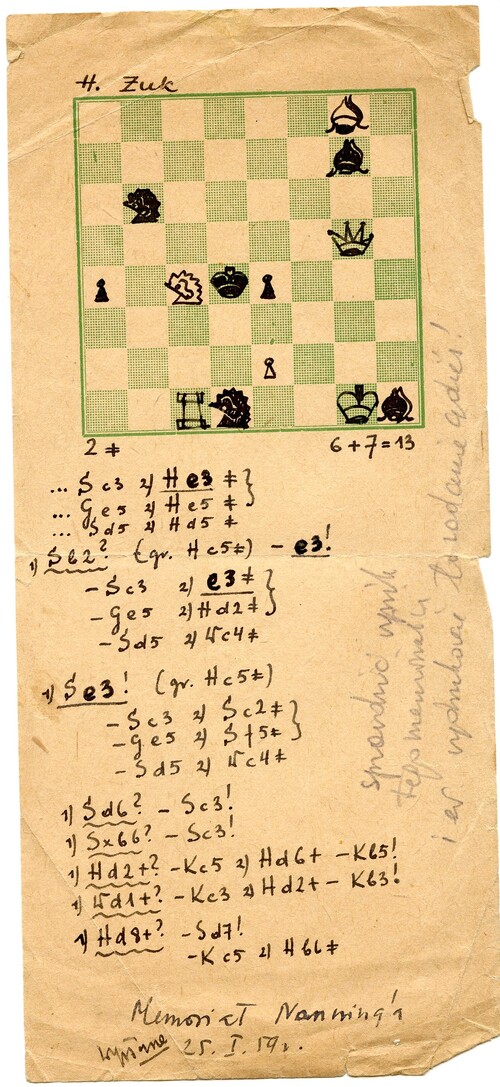 H. Żuk
2 ≠
6 + 7 = 13
... Sc3 2) He3 ≠ }
... Ge5 2) He5 ≠ }
... Sd5 2) Hd5 ≠
1) Sb2? (gr. Hc5≠) – e3!
– Sc3 2) e3≠ }
– Ge5 2) Hd2≠ }
– Sd5 2) Wc4≠
1) Se3! (gr. Hc5≠)
– Sc3 2) Sc2≠ }
– Ge5 2) Sf5≠ }
– Sd5 2) Wc4≠
1) Sd6? – Sc3!
1) Sxb6? – Sc3!
1) Hd2+? – Kc5 2) Hd6+ – Kb5!
1) Wd1+? – Kc3 2) Hd2+ – Kb3!
1) Hd8+? – Sd7!
– Kc5 2) Hb6≠
Memoriał Nanning'a
wysłane 25. I. 59 r.
sprawdzić wynik
tego memoriału
i czy wydrukowano to zadanie gdzieś!